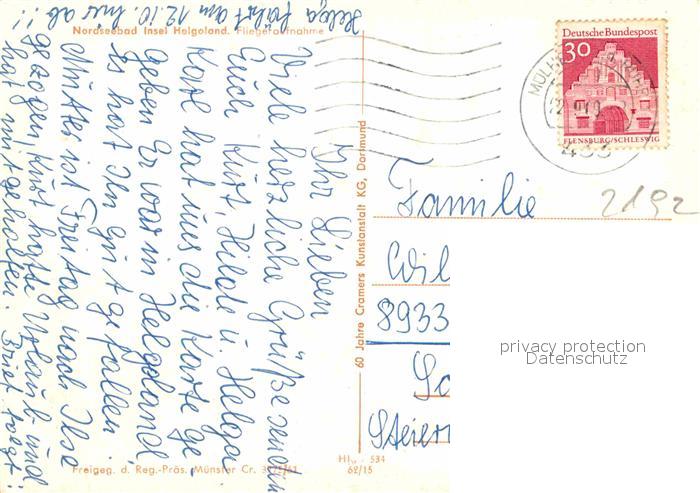 Helga fährt am 12.10. hier ab!!
Nordseebad Insel Helgoland. Fliegeraufnahme
Ihr Lieben
Viele herzliche Grüße senden
Euch Kurt, Hilde u. Helga
hat uns die Karte ge
geben Er war in Helgoland,
Es hat Ihn gut gefallen.
Mutter ist Freitag nach Ilse
gezogen, Kurt hatte Urlaub und
hat mitgeholfen. Brief folgt!
Freigeg. d. Reg.-Präs. Münster Cr.
60 Jahre Cramers Kunstanstalt KG, Dortmund
62/15
Deutsche Bundespost
30
FLENSBURG/SCHLESWIG
433
Familie
2192
Wil
8933
Steier
privacy protection
Datenschutz